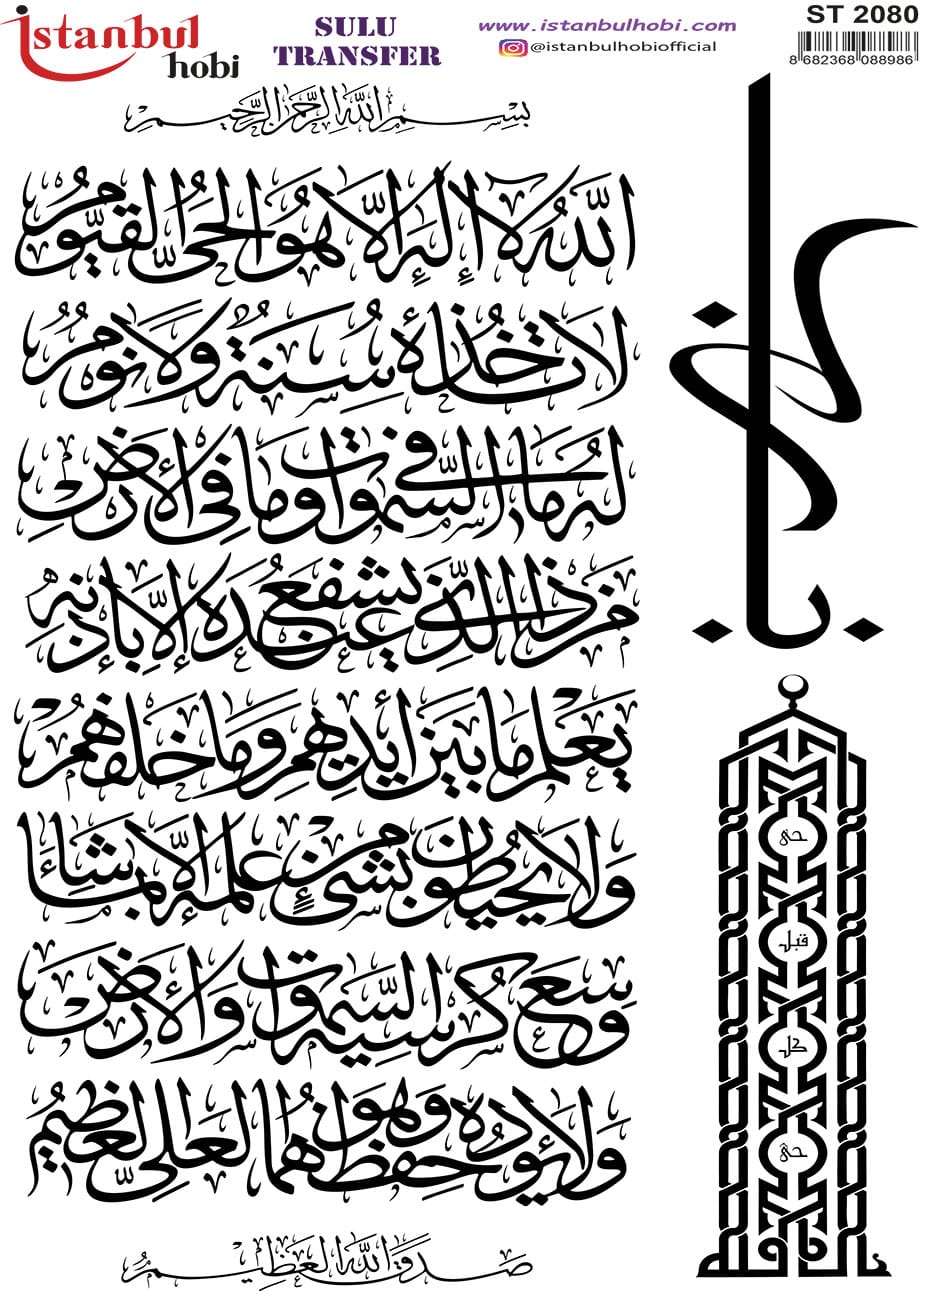 istanbul hobi
SULU TRANSFER
www.istanbulhobi.com
@istanbulhobiofficial
ST 2080
8 682368 088986
بِسْمِ اللَّهِ الرَّحْمَنِ الرَّحِيمِ
اللَّهُ لَا إِلَهَ إِلَّا هُوَ الْحَيُّ الْقَيُّومُ
لَا تَأْخُذُهُ سِنَةٌ وَلَا نَوْمٌ
لَهُ مَا فِي السَّمَوَاتِ وَمَا فِي الْأَرْضِ
مَنْ ذَا الَّذِي يَشْفَعُ عِنْدَهُ إِلَّا بِإِذْنِهِ
يَعْلَمُ مَا بَيْنَ أَيْدِيهِمْ وَمَا خَلْفَهُمْ
وَلَا يُحِيطُونَ بِشَيْءٍ مِنْ عِلْمِهِ إِلَّا بِمَا شَاءَ
وَسِعَ كُرْسِيُّهُ السَّمَوَاتِ وَالْأَرْضَ
وَلَا يَئُودُهُ حِفْظُهُمَا وَهُوَ الْعَلِيُّ الْعَظِيمُ
صَدَقَ اللَّهُ الْعَظِيمُ
يا كافي
حي
قبل
كل
حي